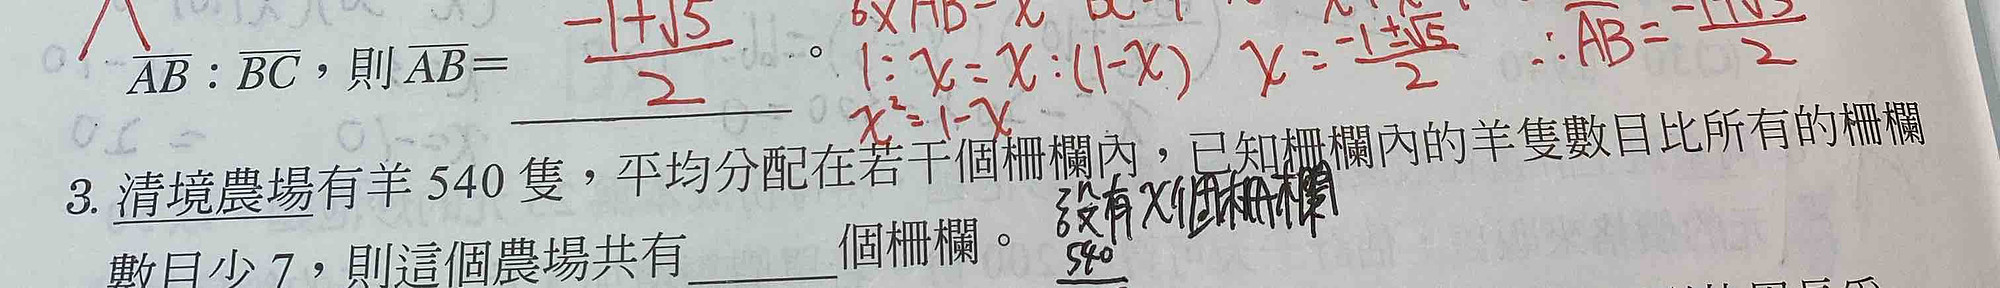 AB : BC，則 AB = (-1+√5)/2 。
1 : x = x : (1-x)  x = (-1±√5)/2  ∴ AB = (-1+√5)/2
x² = 1-x
3. 清境農場有羊 540 隻，平均分配在若干個柵欄內，已知柵欄內的羊隻數目比所有的柵欄
設有x個柵欄
數目少 7，則這個農場共有______個柵欄。
540